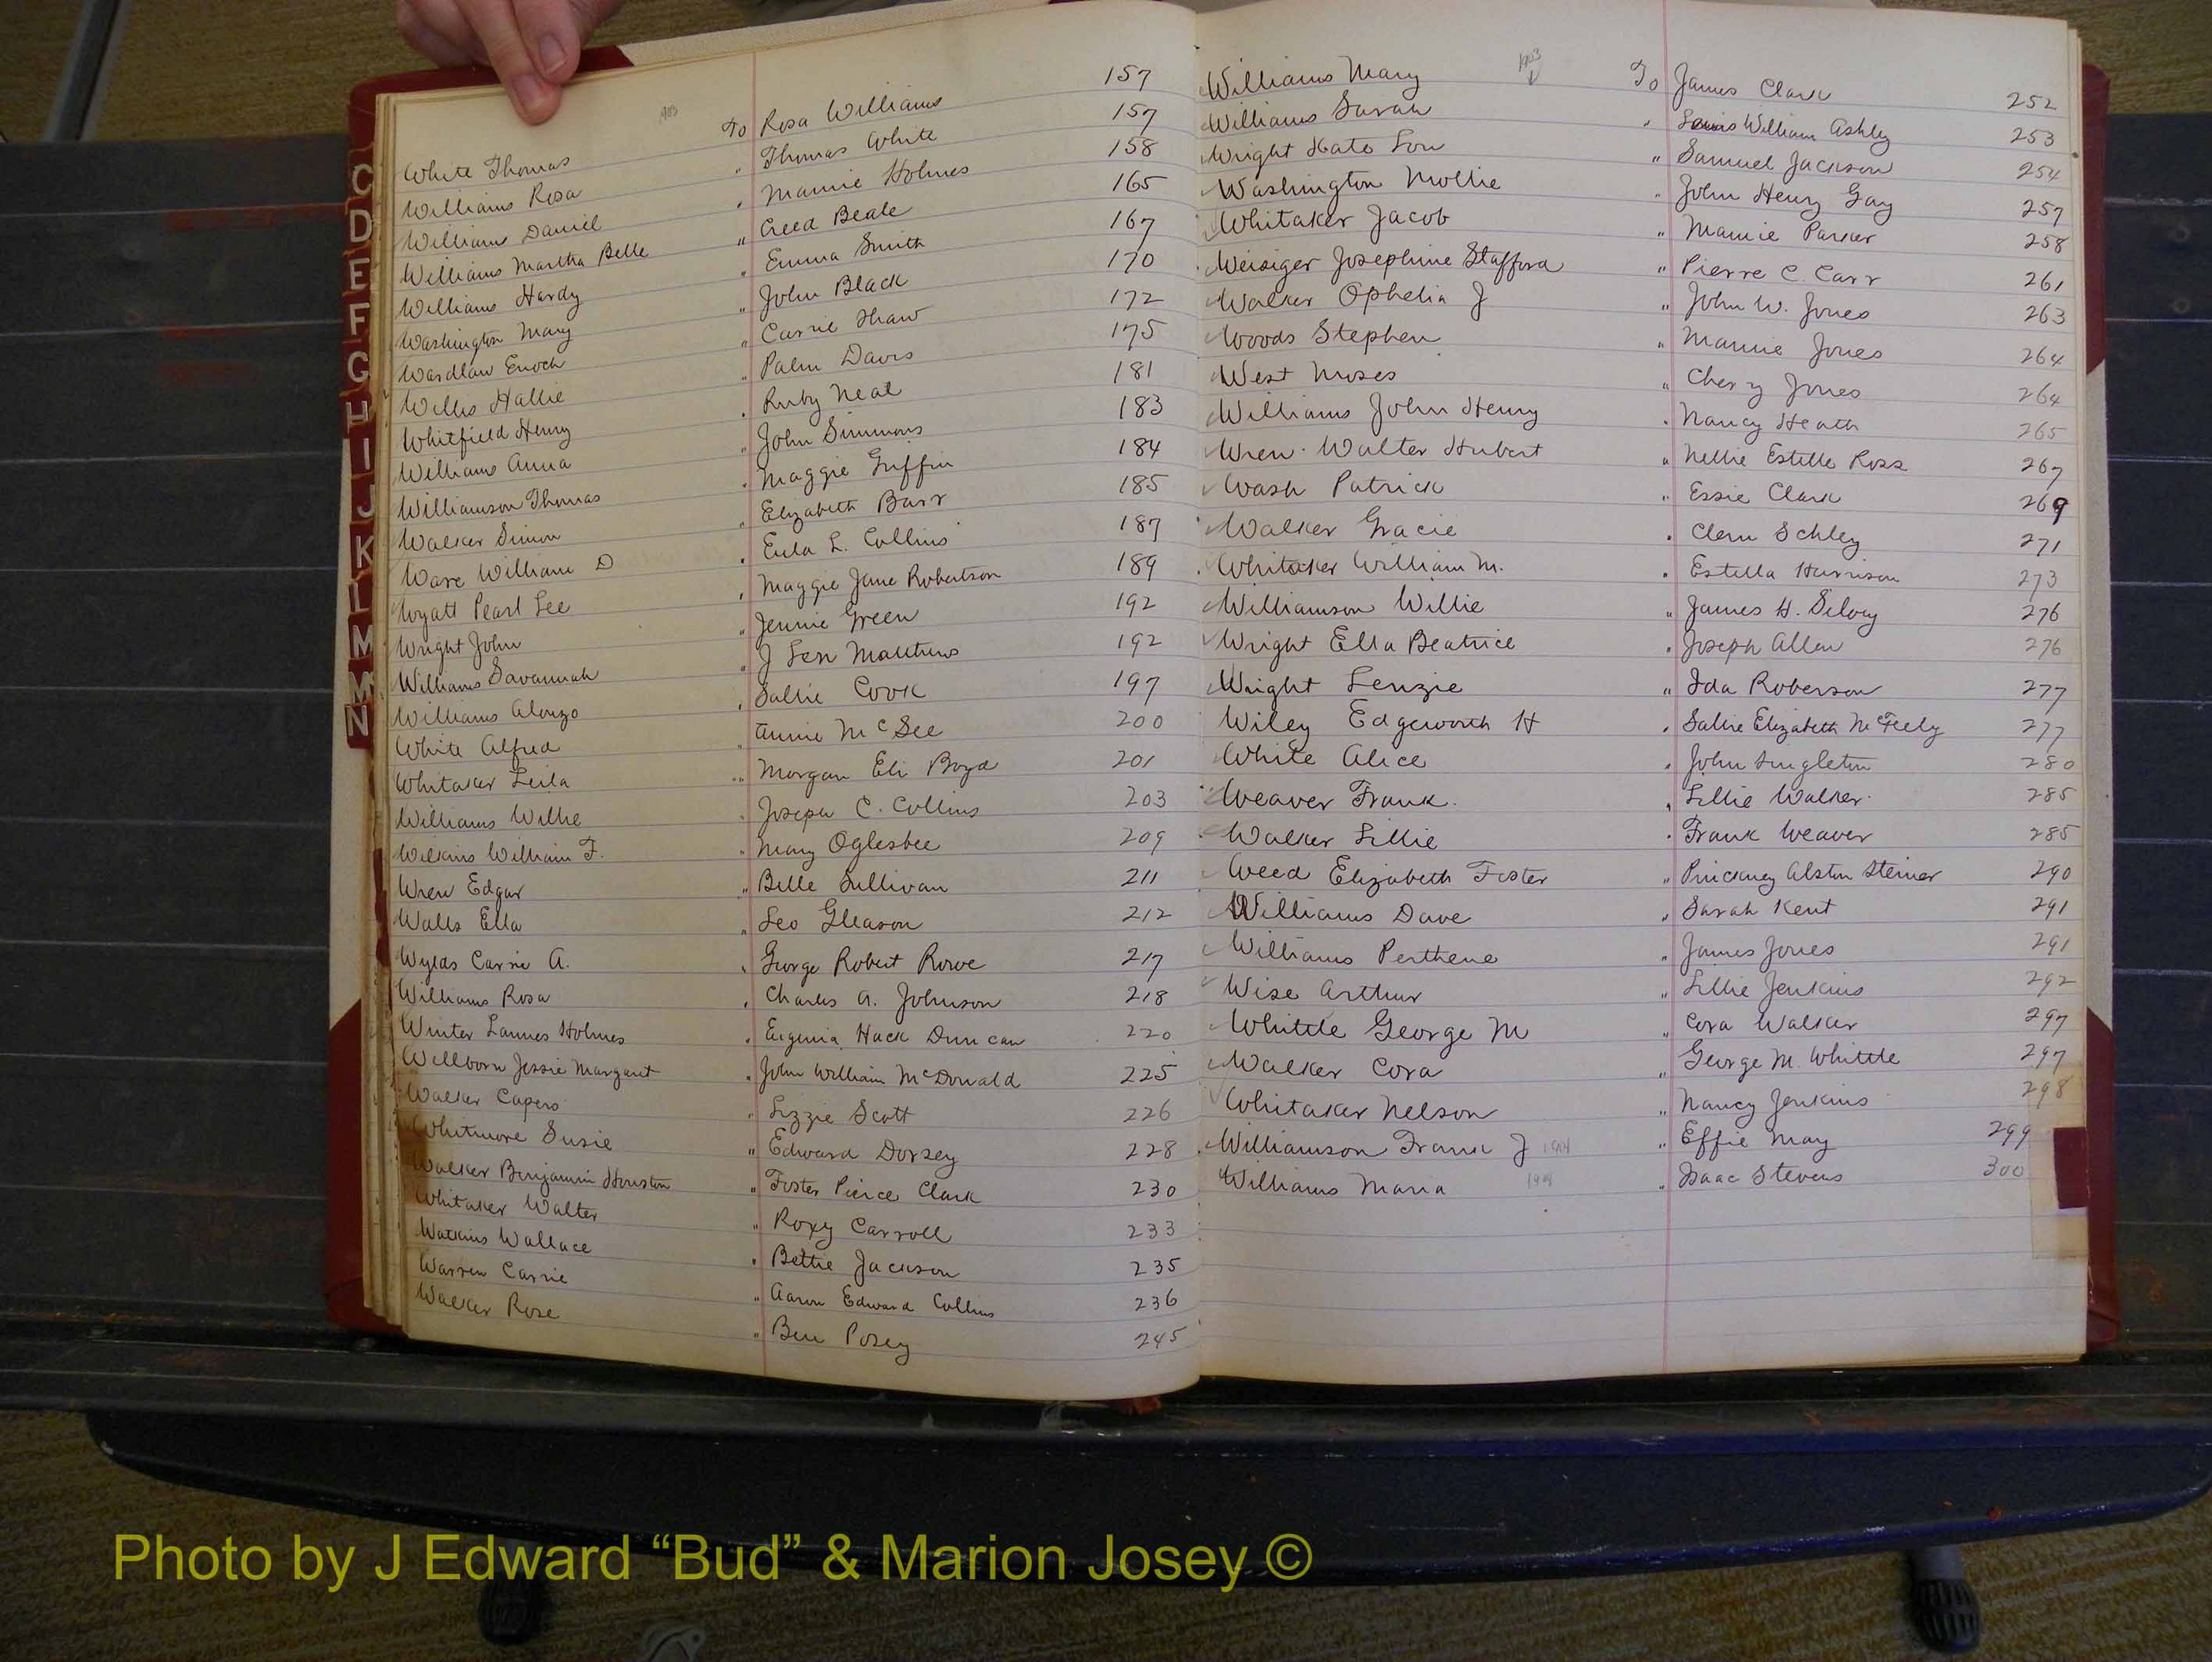 1903
White Thomas To Rosa Williams 157
Williams Rosa " Thomas White 157
Williams Daniel " Mamie Holmes 158
Williams Martha Belle " Creed Beale 165
Williams Hardy " Emma Smith 167
Washington Mary " John Black 170
Wardlaw Enoch " Carrie Shaw 172
Willis Hallie " Palm Davis 175
Whitfield Henry " Ruby Neal 181
Williams Anna " John Simmons 183
Williamson Thomas " Maggie Griffin 184
Walker Simon " Elizabeth Barr 185
Ware William D " Eula L. Collins 187
Wyatt Pearl Lee " Maggie Jane Robertson 189
Wright John " Jennie Green 192
Williams Savannah " J Len Matthews 192
Williams Alonzo " Sallie Cook 197
White Alfred " Annie McGee 200
Whitaker Leila " Morgan Eli Boyd 201
Williams Willie " Joseph C. Collins 203
Wilkins William F. " Mary Oglesbee 209
Wren Edgar " Belle Sullivan 211
Walls Ella " Leo Gleason 212
Wylds Carrie A. " George Robert Rowe 217
Williams Rosa " Charles A. Johnson 218
Winter Lannes Holmes " Eugenia Huck Duncan 220
Wellborn Jessie Margaret " John William McDonald 225
Walker Capers " Lizzie Scott 226
Whitmore Susie " Edward Dorsey 228
Walker Benjamin Houston " Foster Pierce Clark 230
Whitaker Walter " Roxy Carroll 233
Watkins Wallace " Bettie Jackson 235
Warren Carrie " Aaron Edward Collins 236
Walker Rose " Ben Posey 245
1903
Williams Mary To James Clark 252
Williams Sarah " Louis William Ashley 253
Wright Kate Lou " Samuel Jackson 254
Washington Mollie " John Henry Gay 257
Whitaker Jacob " Mamie Parker 258
Weisiger Josephine Stafford " Pierre C. Carr 261
Walker Ophelia J " John W. Jones 263
Woods Stephen " Mamie Jones 264
West Moses " Chery Jones 264
Williams John Henry " Nancy Heath 265
Wren Walter Hubert " Nellie Estelle Ross 267
Wash Patrick " Essie Clark 269
Walker Gracie " Clem Schley 271
Whitaker William M. " Estella Harrison 273
Williamson Willie " James H. Silvey 276
Wright Ella Beatrice " Joseph Allen 276
Wright Lenzie " Ida Roberson 277
Wiley Edgeworth H " Sallie Elizabeth McFeely 277
White Alice " John Singleton 280
Weaver Frank. " Lillie Walker 285
Walker Lillie " Frank Weaver 285
Weed Elizabeth Foster " Pinckney Alston Steiner 290
Williams Dave " Sarah Kent 291
Williams Perthene " James Jones 291
Wise Arthur " Lillie Jenkins 292
Whittle George M " Cora Walker 297
Walker Cora " George M. Whittle 297
Whitaker Nelson " Nancy Jenkins 298
Williamson Frank J 1904 " Effie May 299
Williams Maria 1904 " Isaac Stevens 300
C
D
E
F
G
H
I
J
K
L
M
M
N
Photo by J Edward “Bud” & Marion Josey ©